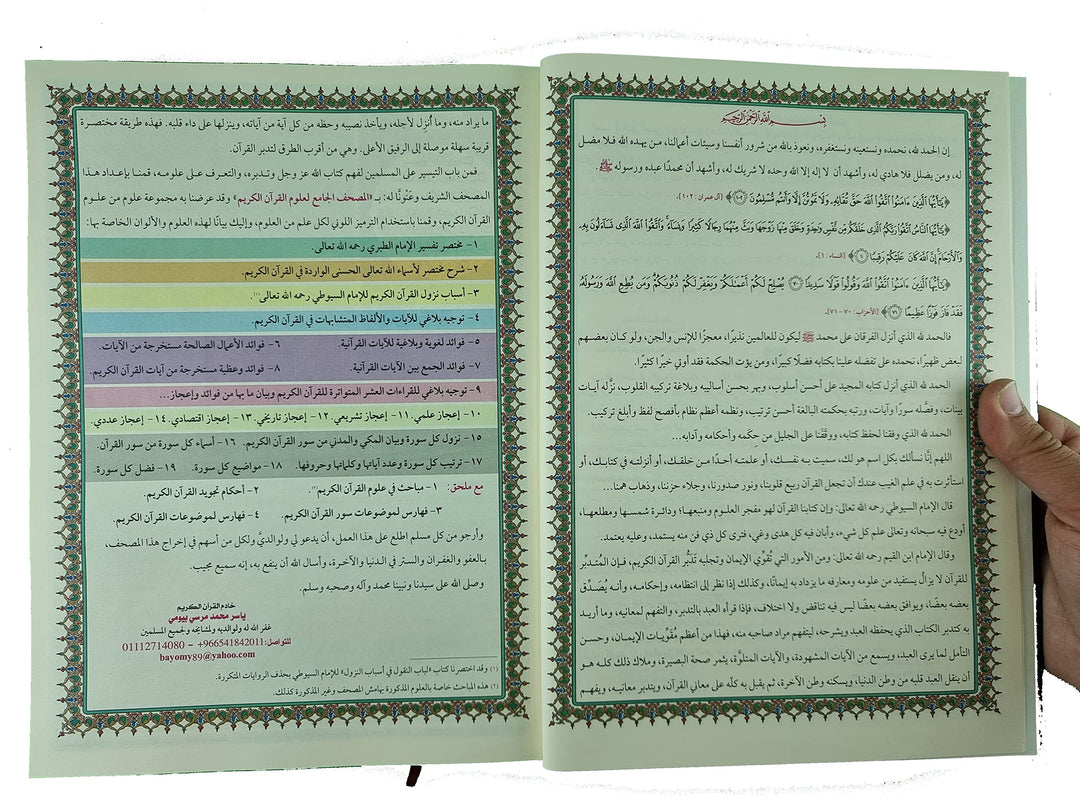 بِسْمِ اللَّهِ الرَّحْمَنِ الرَّحِيمِ
إن الحمد لله، نحمده ونستعينه ونستغفره، ونعوذ بالله من شرور أنفسنا وسيئات أعمالنا، من يهده الله فلا مضل
له، ومن يضلل فلا هادي له، وأشهد أن لا إله إلا الله وحده لا شريك له، وأشهد أن محمدًا عبده ورسوله ﷺ.
﴿يَٰٓأَيُّهَا ٱلَّذِينَ ءَامَنُوا۟ ٱتَّقُوا۟ ٱللَّهَ حَقَّ تُقَاتِهِۦ وَلَا تَمُوتُنَّ إِلَّا وَأَنتُم مُّسْلِمُونَ ١٠٢﴾ [آل عمران: ١٠٢].
﴿يَٰٓأَيُّهَا ٱلنَّاسُ ٱتَّقُوا۟ رَبَّكُمُ ٱلَّذِى خَلَقَكُم مِّن نَّفْسٍ وَٰحِدَةٍ وَخَلَقَ مِنْهَا زَوْجَهَا وَبَثَّ مِنْهُمَا رِجَالًا كَثِيرًا وَنِسَآءً وَٱتَّقُوا۟ ٱللَّهَ ٱلَّذِى تَسَآءَلُونَ بِهِۦ
وَٱلْأَرْحَامَ إِنَّ ٱللَّهَ كَانَ عَلَيْكُمْ رَقِيبًا ١﴾ [النساء: ١].
﴿يَٰٓأَيُّهَا ٱلَّذِينَ ءَامَنُوا۟ ٱتَّقُوا۟ ٱللَّهَ وَقُولُوا۟ قَوْلًا سَدِيدًا ٧٠ يُصْلِحْ لَكُمْ أَعْمَٰلَكُمْ وَيَغْفِرْ لَكُمْ ذُنُوبَكُمْ وَمَن يُطِعِ ٱللَّهَ وَرَسُولَهُۥ
فَقَدْ فَازَ فَوْزًا عَظِيمًا ٧١﴾ [الأحزاب: ٧٠-٧١].
فالحمد لله الذي أنزل الفرقان على محمد ﷺ ليكون للعالمين نذيرًا، معجزًا للإنس والجن، ولو كان بعضهم
لبعض ظهيرًا، نحمده على تفضله علينا بكتابه فضلًا كبيرًا، ومن يؤت الحكمة فقد أوتي خيرًا كثيرًا.
الحمد لله الذي أنزل كتابه المجيد على أحسن أسلوب، وبهر بحسن أساليبه وبلاغة تركيبه القلوب، نزَّله آيات
بينات، وفصَّله سورًا وآيات، ورتبه بحكمته البالغة أحسن ترتيب، ونظمه أعظم نظام بأفصح لفظ وأبلغ تركيب.
الحمد لله الذي وفقنا لحفظ كتابه، ووقَّفنا على الجليل من حِكَمه وأحكامه وآدابه...
اللهم إنَّا نسألك بكل اسم هو لك، سميت به نفسك، أو علمته أحدًا من خلقك، أو أنزلته في كتابك، أو
استأثرت به في علم الغيب عندك أن تجعل القرآن ربيع قلوبنا، ونور صدورنا، وجلاء حزننا، وذهاب همنا...
قال الإمام السيوطي رحمه الله تعالى: وإن كتابنا القرآن لهو مفجر العلوم ومنبعها؛ ودائرة شمسها ومطلعها،
أودع فيه سبحانه وتعالى علم كل شيء، وأبان فيه كل هدى وغي، فترى كل ذي فن منه يستمد، وعليه يعتمد.
وقال الإمام ابن القيم رحمه الله تعالى: ومن الأمور التي تُقوِّي الإيمان وتجلبه تَدَبُّر القرآن الكريم، فإن المُتدبِّر
للقرآن لا يزالُ يستفيد من علومه ومعارفه ما يزداد به إيمانًا، وكذلك إذا نظر إلى انتظامه، وإحكامه، وأنه يُصَدِّق
بعضه بعضًا، ويوافق بعضه بعضًا ليس فيه تناقض ولا اختلاف، فإذا قرأه العبد بالتدبر، والتفهم لمعانيه، وما أريد
به كتدبر الكتاب الذي يحفظه العبد ويشرحه، ليتفهم مراد صاحبه منه، فهذا من أعظم مُقوِّيات الإيمان، وحسن
التأمل لما يرى العبد، ويسمع من الآيات المشهودة، والآيات المتلوَّة، يثمر صحة البصيرة، وملاك ذلك كله هو
أن ينقل العبد قلبه من وطن الدنيا، ويسكنه وطن الآخرة، ثم يقبل به كلِّه على معاني القرآن، ويتدبر معانيه، ويفهم
ما يراد منه، وما أُنزل لأجله، ويأخذ نصيبه وحظه من كل آية من آياته، وينزلها على داء قلبه. فهذه طريقة مختصرة
قريبة سهلة موصلة إلى الرفيق الأعلى. وهي من أقرب الطرق لتدبر القرآن.
فمن باب التيسير على المسلمين لفهم كتاب الله عز وجل وتدبره، والتعرف على علومه، قمنا بإعداد هذا
المصحف الشريف وعَنْوَنَّا له: بـ «المصحف الجامع لعلوم القرآن الكريم» وقد عرضنا به مجموعة علوم من علوم
القرآن الكريم، وقمنا باستخدام الترميز اللوني لكل علم من العلوم، وإليك بيانًا لهذه العلوم والألوان الخاصة بها:
١- مختصر تفسير الإمام الطبري رحمه الله تعالى.
٢- شرح مختصر لأسماء الله تعالى الحسنى الواردة في القرآن الكريم.
٣- أسباب نزول القرآن الكريم للإمام السيوطي رحمه الله تعالى(١).
٤- توجيه بلاغي للآيات والألفاظ المتشابهات في القرآن الكريم.
٥- فوائد لغوية وبلاغية للآيات القرآنية. ٦- فوائد الأعمال الصالحة مستخرجة من الآيات.
٧- فوائد الجمع بين الآيات القرآنية. ٨- فوائد وعظية مستخرجة من آيات القرآن الكريم.
٩- توجيه بلاغي للقراءات العشر المتواترة للقرآن الكريم وبيان ما بها من فوائد وإعجاز...
١٠- إعجاز علمي. ١١- إعجاز تشريعي. ١٢- إعجاز تاريخي. ١٣- إعجاز اقتصادي. ١٤- إعجاز عددي.
١٥- نزول كل سورة وبيان المكي والمدني من سور القرآن الكريم. ١٦- أسماء كل سورة من سور القرآن.
١٧- ترتيب كل سورة وعدد آياتها وكلماتها وحروفها. ١٨- مواضيع كل سورة. ١٩- فضل كل سورة.
مع ملحق: ١- مباحث في علوم القرآن الكريم(٢). ٢- أحكام تجويد القرآن الكريم.
٣- فهارس لموضوعات سور القرآن الكريم. ٤- فهارس لموضوعات القرآن الكريم.
وأرجو من كل مسلم اطلع على هذا العمل، أن يدعو لي ولوالديَّ ولكل من أسهم في إخراج هذا المصحف،
بالعفو والغفران والستر في الدنيا والآخرة، وأسأل الله أن ينفع به، إنه سميع مجيب.
وصلى الله على سيدنا ونبينا محمد وآله وصحبه وسلم.
خادم القرآن الكريم
ياسر محمد مرسي بيومي
غفر الله له ولوالديه ولمشايخه ولجميع المسلمين
للتواصل: 966541842011+ - 01112714080
bayomy89@yahoo.com
(١) وقد اختصرنا كتاب «لباب النقول في أسباب النزول» للإمام السيوطي بحذف الروايات المتكررة.
(٢) هذه المباحث خاصة بالعلوم المذكورة بهامش المصحف وغير المذكورة كذلك.